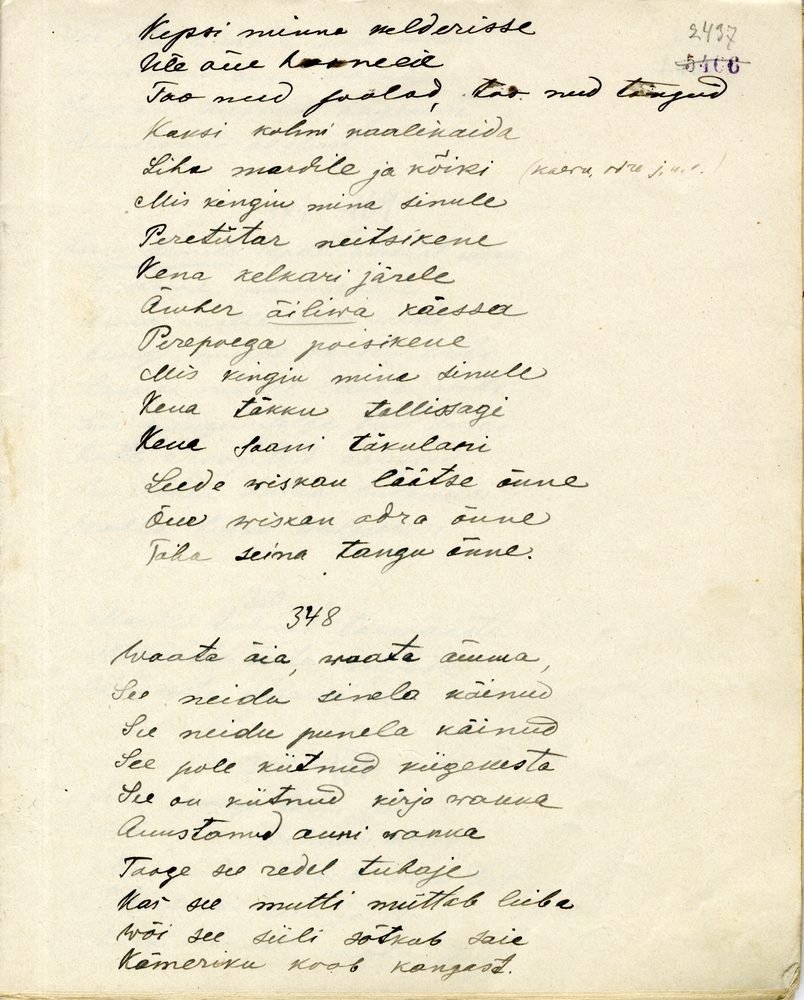 2437
5406
Kepsi minna kelderisse
Üle õue
Too nud soolad, too nud tangud
Kaksi kolmi naalikaida
Liha mardile ja kõiki (kaeru, odre j.n.e.)
Mis kingin mina sinule
Peretütar neitsikene
Kena kelkari järele
Ämber äiliwa käessa
Perepoega poisikene
Mis kingin mina sinule
Kena täkku tallissagi
Kena saani täkulani
Leede wiskan läätse õnne
Õue wiskan odra õnne
Taha seina tangu õnne.
348
Waata äia, waata ämma,
See neidu sinela käinud
See neidu punela käinud
See pole kiitnud kiigekesta
See on kiitnud kirja wakka
Auustanud auni wakka
Tooge see redel tubaje
Kas see mutti müttab leiba
Wõi see siili sõtkub saie
Kämeriku koob kangast.